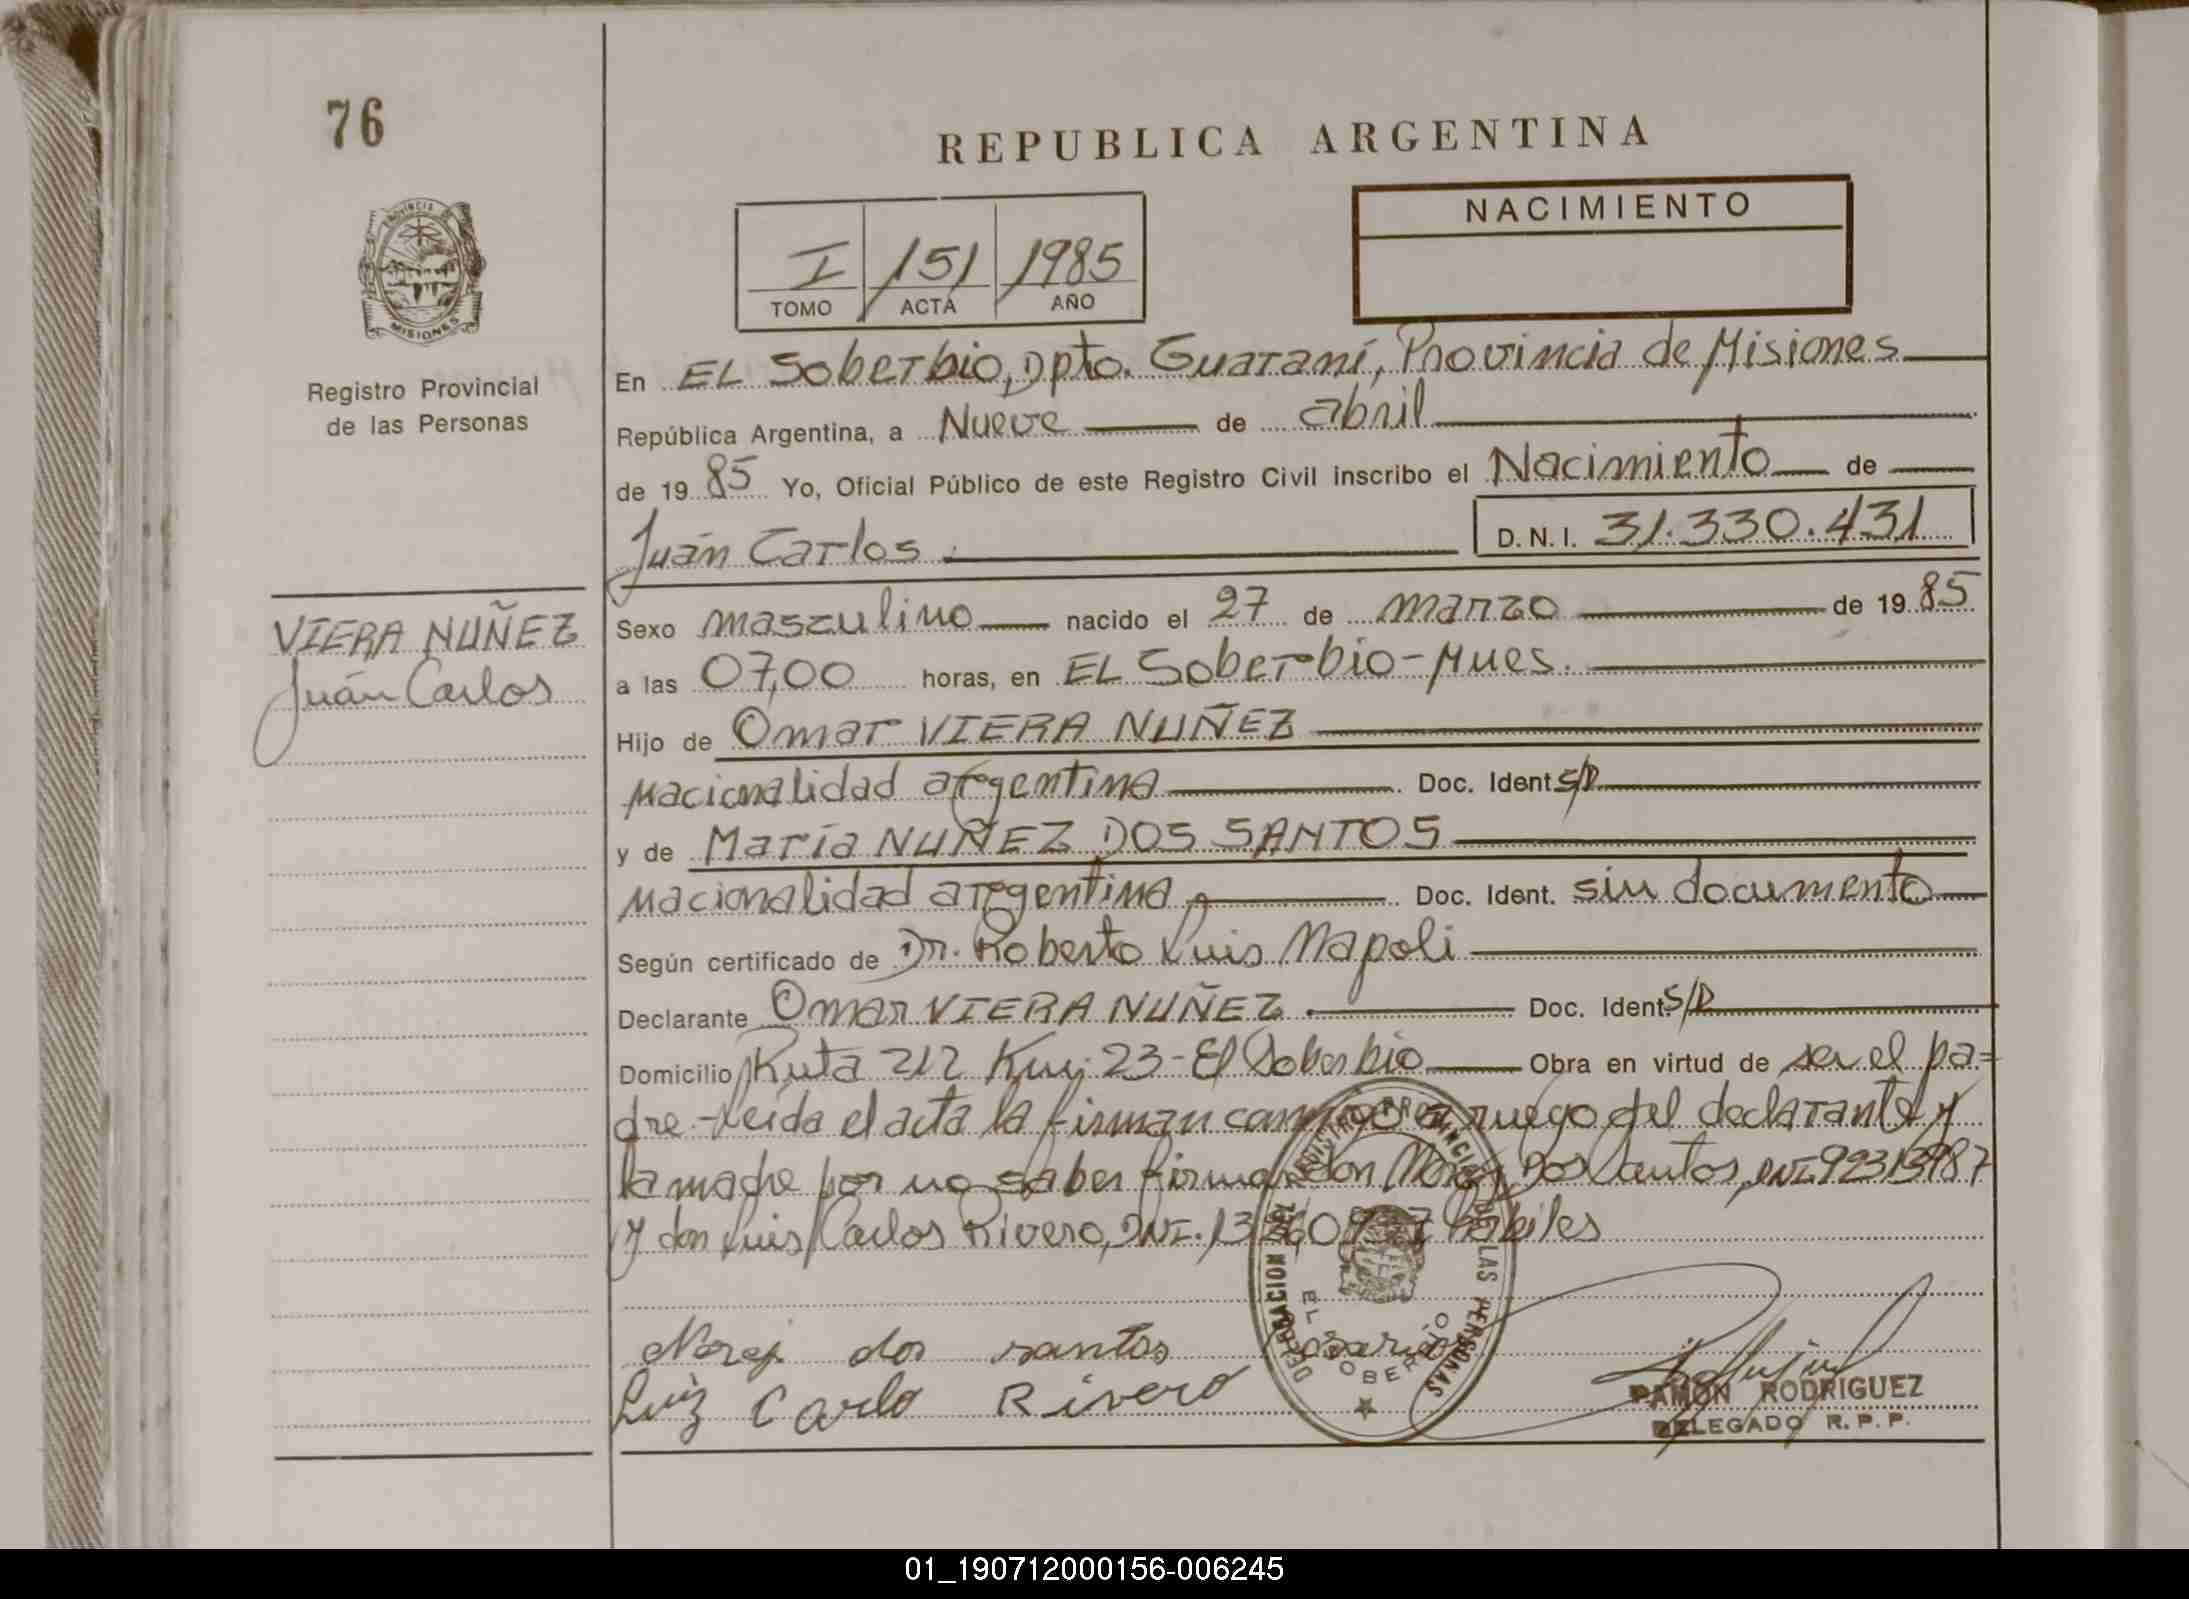 76
REPUBLICA ARGENTINA
PROVINCIA DE
MISIONES
Registro Provincial
de las Personas
I 151 1985
TOMO ACTA AÑO
NACIMIENTO
En EL Soberbio, Dpto. Guaraní, Provincia de Misiones
República Argentina, a Nueve de abril
de 1985 Yo, Oficial Público de este Registro Civil inscribo el Nacimiento de
Juán Carlos.
D. N. I. 31.330.431
VIERA NUÑEZ
Juán Carlos
Sexo masculino nacido el 27 de marzo de 1985
a las 07,00 horas, en EL Soberbio-Mnes.
Hijo de Omar VIERA NUÑEZ
Nacionalidad argentina Doc. Ident S/D
y de María NUÑEZ DOS SANTOS
Nacionalidad argentina Doc. Ident. sin documento
Según certificado de Dr. Roberto Luis Napoli
Declarante Omar VIERA NUÑEZ. Doc. Ident. S/D
Domicilio Ruta 212 Km. 23-El Soberbio Obra en virtud de ser el pa=
dre.-Leída el acta la firman conmigo a ruego del declarante y
la madre por no saber firmar don Dos Santos, DNI
y don Luis Carlos Rivero, DNI. hábiles
dos santos
Luiz Carlo Rivero
DELEGACION DEL REGISTRO PROVINCIAL DE LAS PERSONAS
EL SOBERBIO
RAMON RODRIGUEZ
DELEGADO R. P. P.
01_190712000156-006245